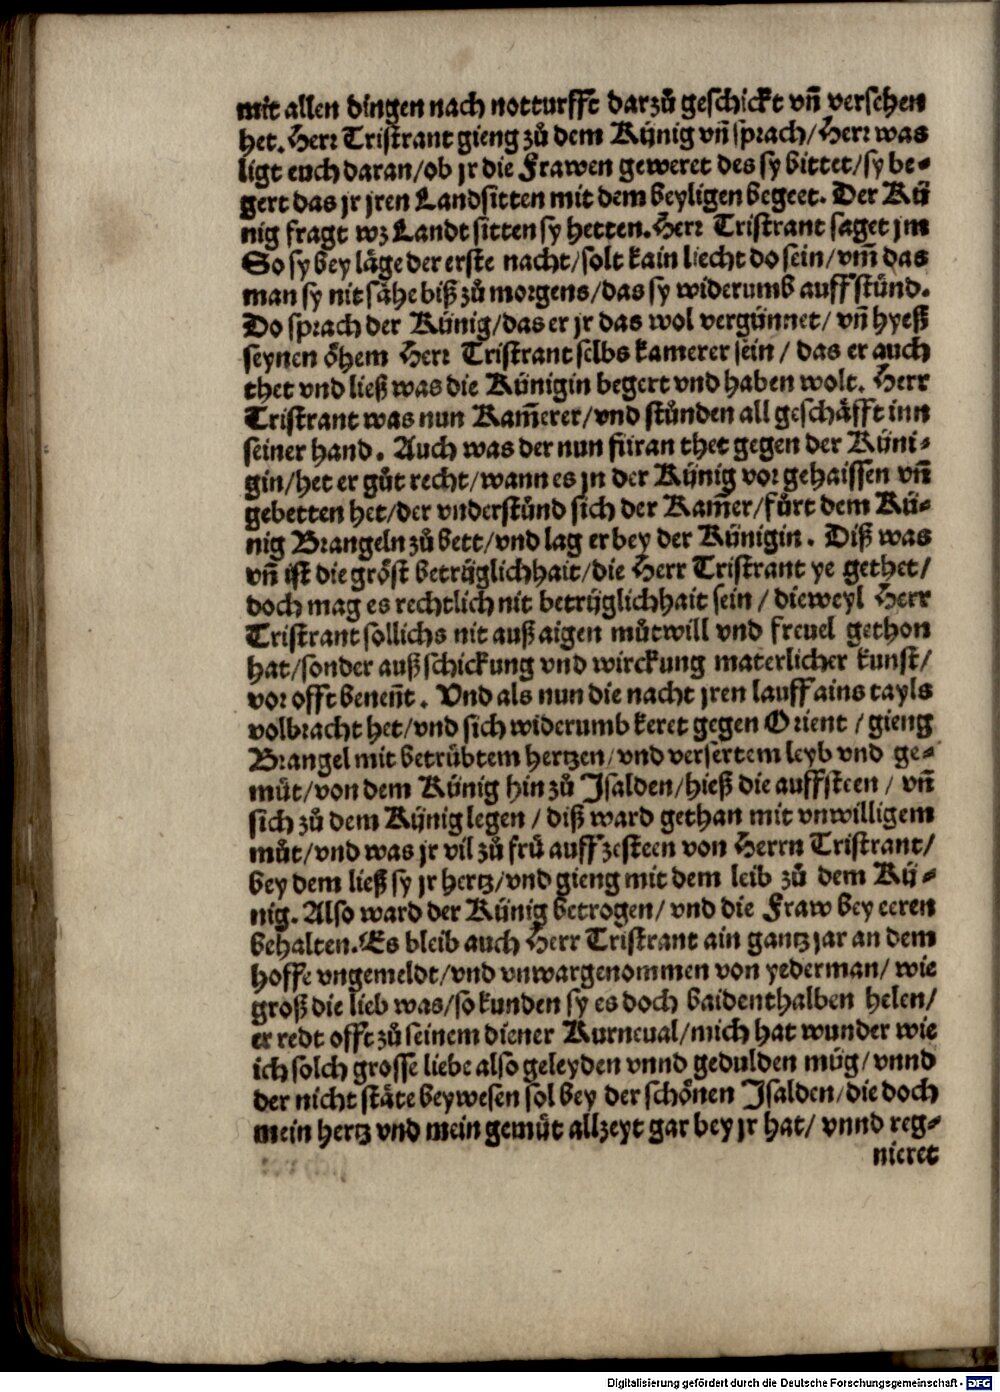 mit allen dingen nach notturfft darzů geschickt vñ versehen
het. Herr Tristrant gieng zů dem Künig vñ sprach/Herr was
ligt euch daran/ob jr die Frawen geweret des sy bittet/sy be-
gert das jr jren Landsitten mit dem beyligen begeet. Der Kü
nig fragt wz Landt sitten sy hetten. Herr Tristrant saget jm
So sy bey läge der erste nacht/solt kain liecht do sein/vm̃ das
man sy nit sähe biß zů morgens/das sy widerumb auffstünd.
Do sprach der Künig/das er jr das wol vergünnet/ vñ hyeß
seynen öhem Herr Tristrant selbs kamerer sein / das er auch
thet vnd ließ was die Künigin begert vnd haben wolt. Herr
Tristrant was nun Kam̃erer/vnd stůnden all geschäfft inn
seiner hand. Auch was der nun füran thet gegen der Küni-
gin/het er gůt recht/wann es jn der Künig vor gehaissen vñ
gebetten het/der vnderstůnd sich der Kam̃er/fürt dem Kü-
nig Brangeln zů bett/vnd lag er bey der Künigin. Diß was
vñ ist die gröst betrüglichhait/die Herr Tristrant ye gethet/
doch mag es rechtlich nit betrüglichhait sein / dieweyl Herr
Tristrant sollichs nit auß aigen můtwill vnd freuel gethon
hat/sonder auß schickung vnd wirckung materlicher kunst/
vor offt beneñt. Vnd als nun die nacht jren lauff ains tayls
volbracht het/vnd sich widerumb keret gegen Orient / gieng
Brangel mit betrübtem hertzen/vnd versertem leyb vnd ge-
müt/von dem Künig hin zů Jsalden/hieß die auffsteen / vñ
sich zů dem Künig legen / diß ward gethan mit vnwilligem
můt/vnd was jr vil zů frü auff zesteen von Herrn Tristrant/
bey dem ließ sy jr hertz/vnd gieng mit dem leib zů dem Kü-
nig. Also ward der Künig betrogen/ vnd die Fraw bey eeren
behalten. Es bleib auch Herr Tristrant ain gantz jar an dem
hoffe vngemeldt/vnd vnwargenommen von yederman/ wie
groß die lieb was/so kunden sy es doch baidenthalben helen/
er redt offt zů seinem diener Kurneual/mich hat wunder wie
ich solch grosse liebe also geleyden vnnd gedulden müg/vnnd
der nicht stäte beywesen sol bey der schönen Jsalden/die doch
mein hertz vnd mein gemüt allzeyt gar bey jr hat/ vnnd reg-
nieret
Digitalisierung gefördert durch die Deutsche Forschungsgemeinschaft - DFG